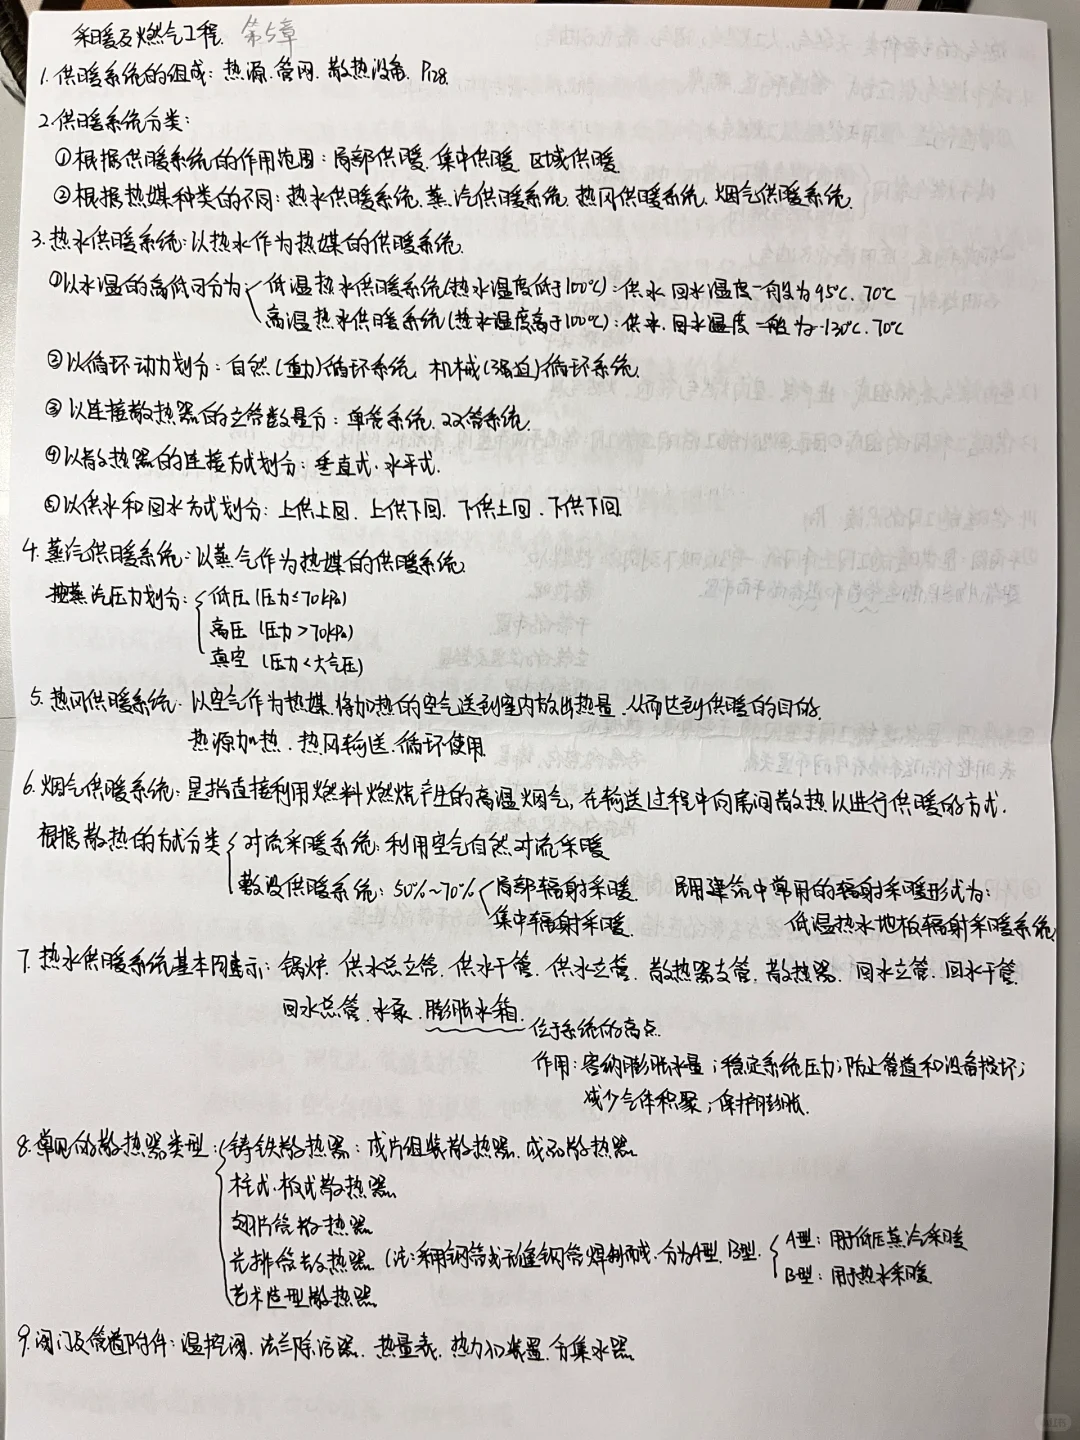 采暖及燃气工程. 第5章
1. 供暖系统的组成: 热源.管网.散热设备. P128
2.供暖系统分类:
①根据供暖系统的作用范围: 局部供暖. 集中供暖. 区域供暖.
②根据热媒种类的不同: 热水供暖系统.蒸汽供暖系统. 热风供暖系统. 烟气供暖系统.
3.热水供暖系统:以热水作为热媒的供暖系统.
①以水温的高低可分为: 低温热水供暖系统(热水温度低于100℃): 供水.回水温度一般为95℃. 70℃
高温热水供暖系统(热水温度高于100℃): 供水.回水温度一般为130℃. 70℃
②以循环动力划分: 自然(重力)循环系统. 机械(强迫)循环系统.
③以连接散热器的立管数量分: 单管系统. 双管系统.
④以散热器的连接方式划分: 垂直式.水平式.
⑤以供水和回水方式划分: 上供上回. 上供下回. 下供上回. 下供下回.
4.蒸汽供暖系统:以蒸气作为热媒的供暖系统.
按蒸汽压力划分: 低压 (压力≤70kPa)
高压 (压力>70kPa)
真空 (压力<大气压)
5. 热风供暖系统: 以空气作为热媒.将加热的空气送到室内放出热量. 从而达到供暖的目的.
热源加热.热风输送.循环使用
6.烟气供暖系统:是指直接利用燃料燃烧产生的高温烟气,在输送过程中向房间散热以进行供暖的方式.
根据散热的方式分类 对流采暖系统:利用空气自然对流采暖
供暖系统: 50%~70% 局部辐射采暖. 民用建筑中常用的辐射采暖形式为:
集中辐射采暖. 低温热水地板辐射采暖系统.
7. 热水供暖系统基本图示: 锅炉. 供水总立管. 供水干管. 供水立管. 散热器支管. 散热器. 回水立管. 回水干管.
回水总管.水泵.膨胀水箱. 位于系统的高点.
作用: 容纳膨胀水量;稳定系统压力;防止管道和设备损坏;
减少气体积聚;保护膨胀.
8.常见的散热器类型: 铸铁散热器: 成片组装散热器. 成品散热器.
柱式.板式散热器.
翅片管散热器
光排管散热器 (注:采用钢管或无缝钢管焊制而成.分为A型. B型. A型: 用于低压蒸汽采暖
B型: 用于热水采暖.
艺术造型散热器
9.阀门及管道附件: 温控阀. 法兰除污器. 热量表. 热力入口装置.分集水器.